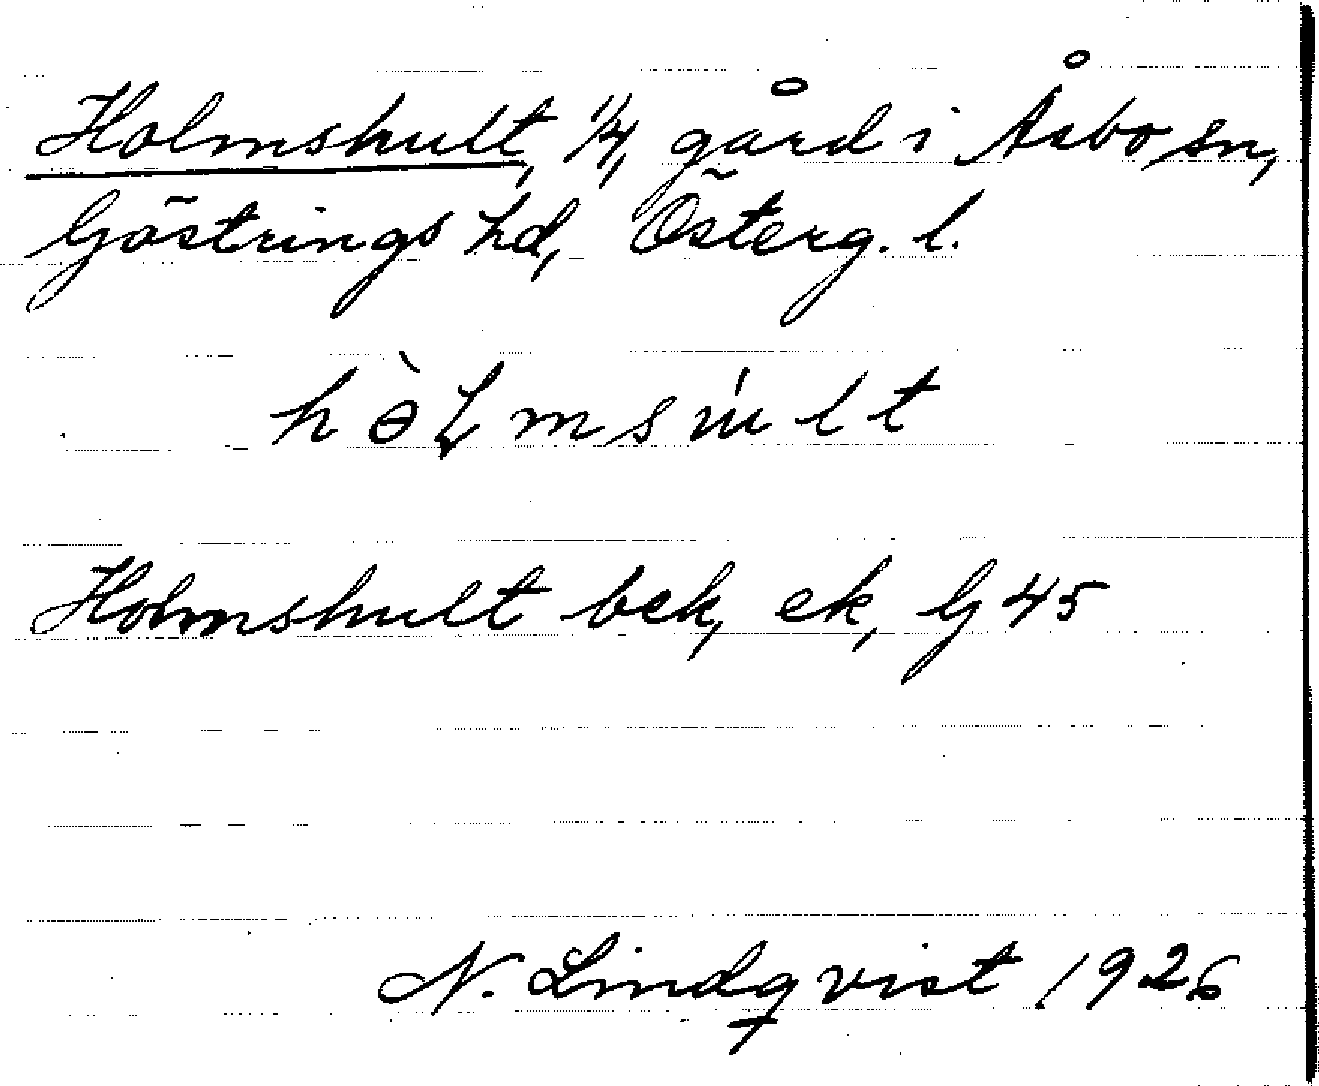 Holmshult, 1/4, gård i Åsbo sn,
Göstrings hd, Österg. l.
Holmshult bek, ek, G 45
N. Lindqvist 1926